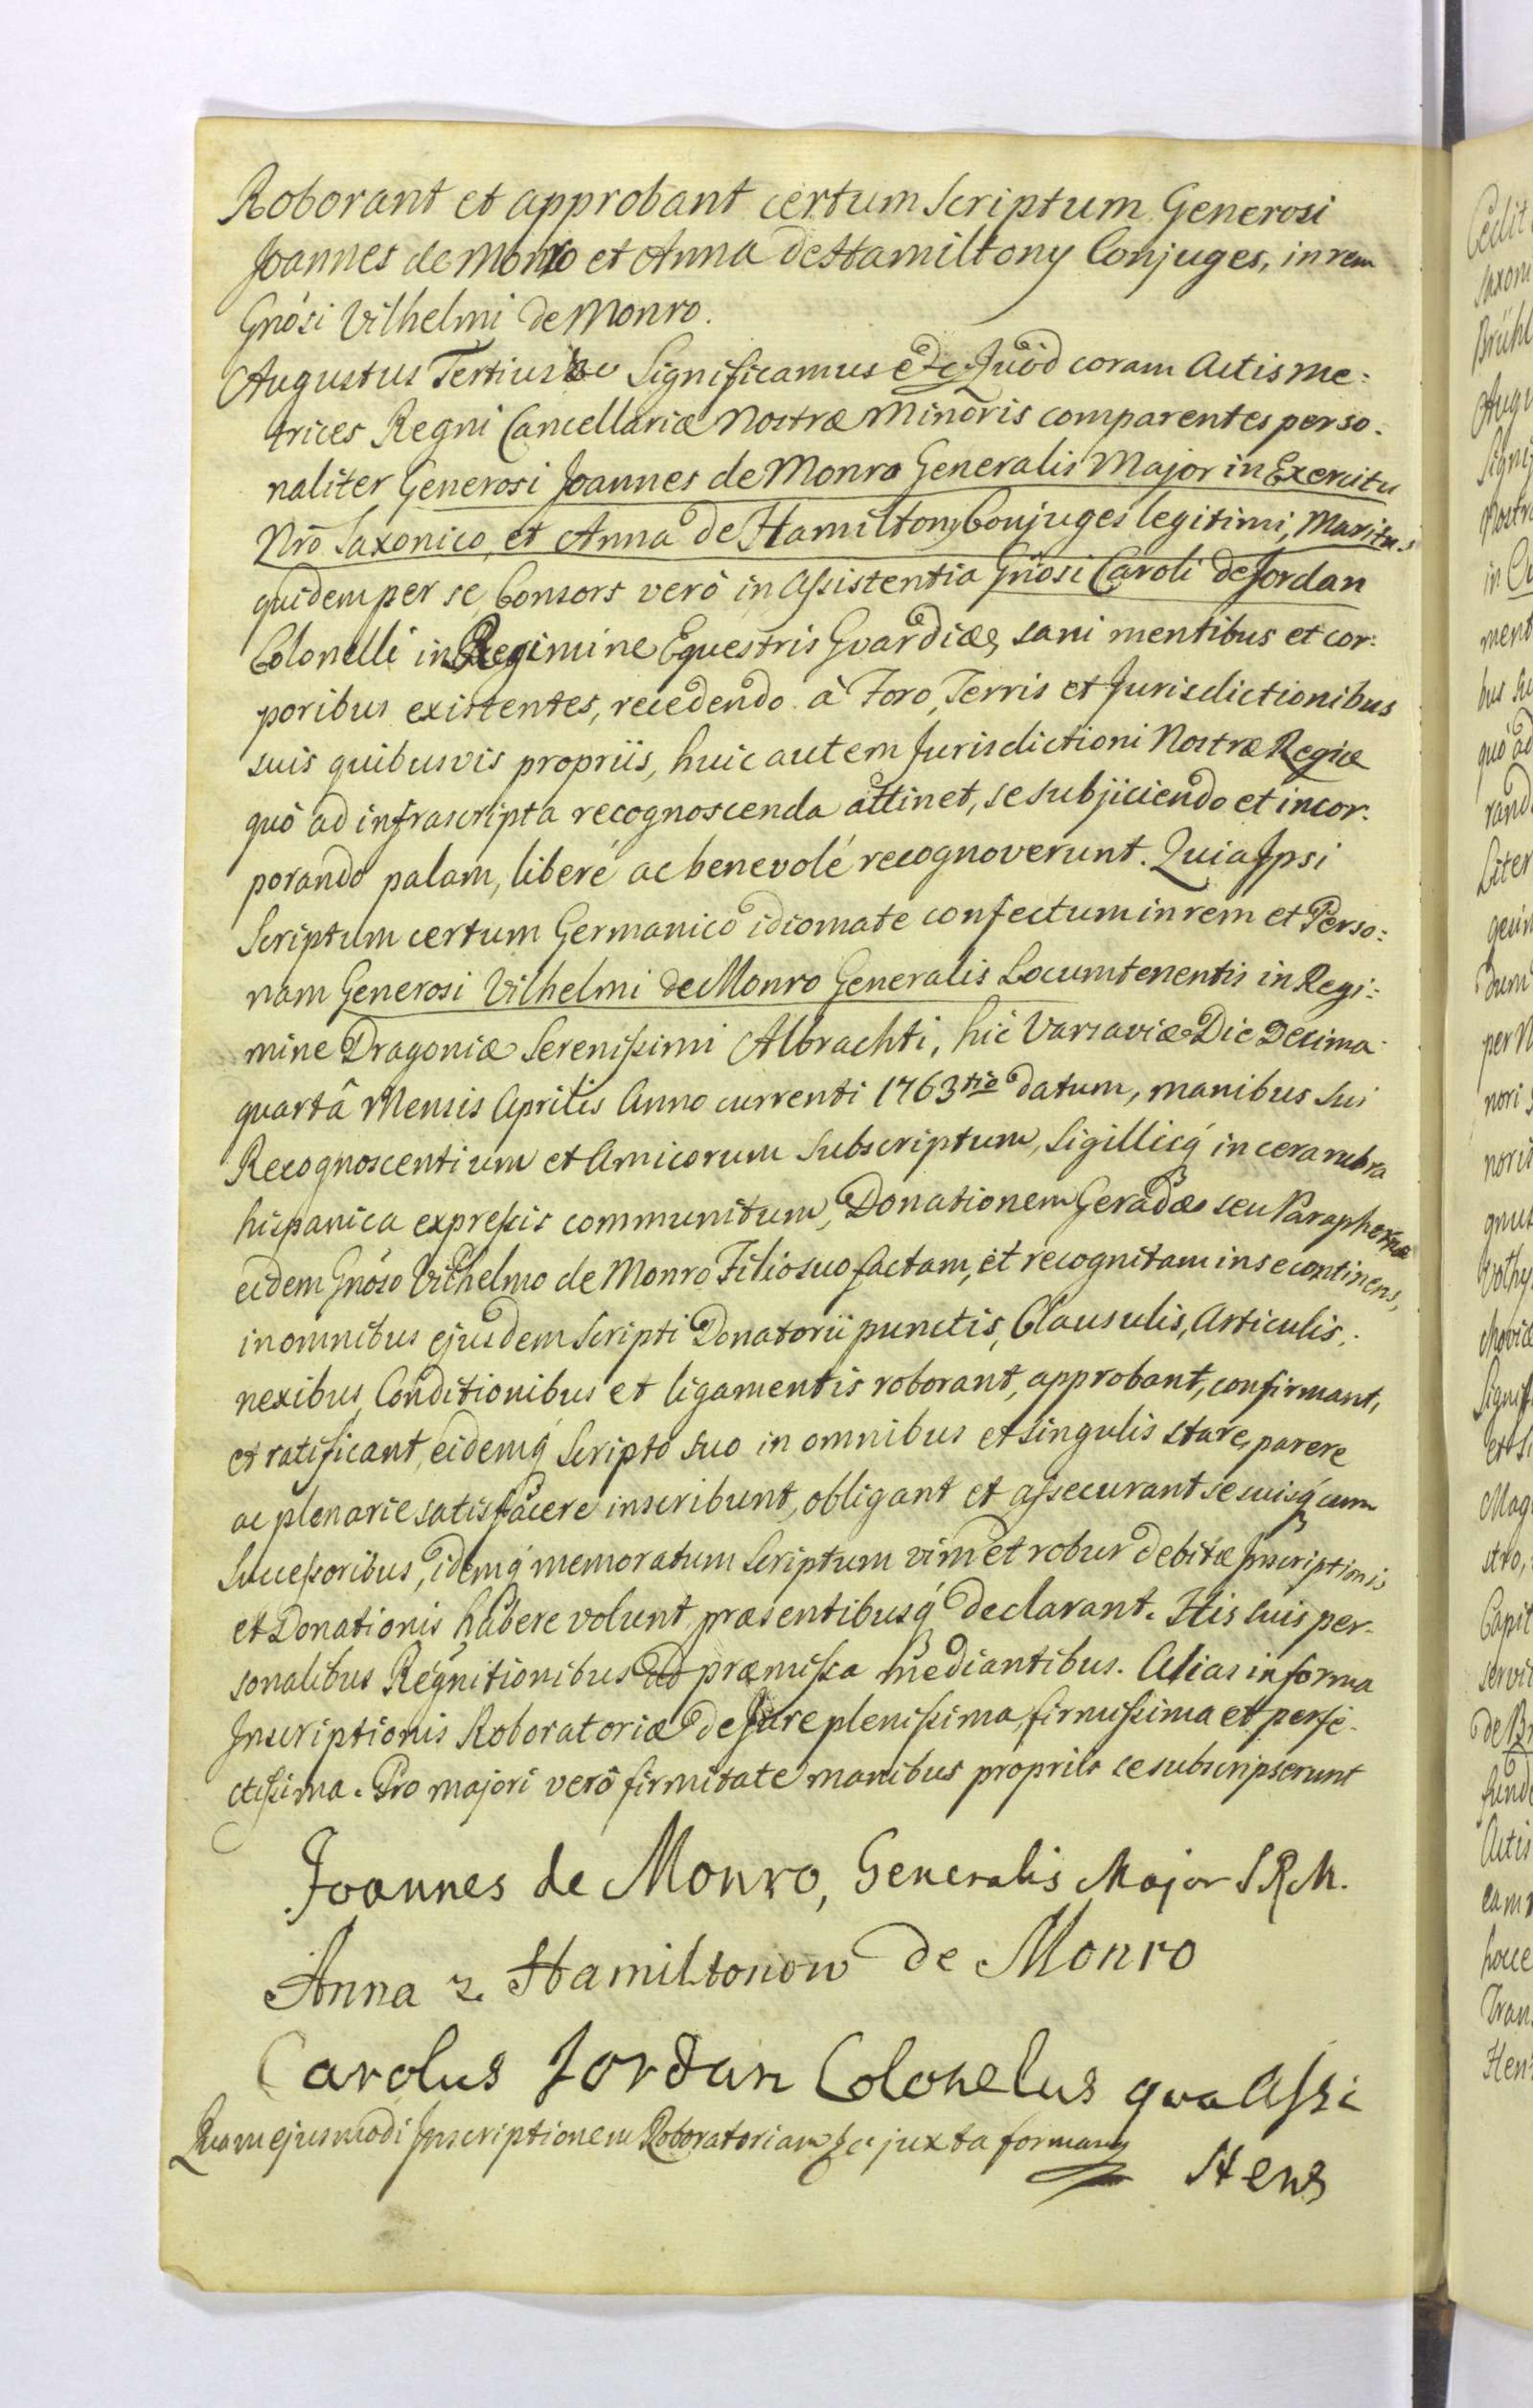 Roborant et approbant certum Scriptum Generosi
Joannes de Monro et Anna de Hamiltony Conjuges, in rem
Gnosi Vilhelmi de Monro.
Augustus Tertius Significamus Quod coram Actis Me-
trices Regni Cancellariæ Nostræ Minoris comparentes perso-
naliter Generosi Joannes de Monro Generalis Major in Exercitu
Nrō Saxonico, et Anna de Hamiltony Conjuges legitimi, Maritus
quidem per se Consors verò in Assistentia Gnosi Caroli de Jordan
Colonelli in Regimine Equestris Gvardiæ, sani mentibus et cor-
poribus existentes, recedendo à Foro, Terris et Jurisdictionibus
suis quibusvis propriis, huic autem Jurisdictioni Nostræ Regiæ
quò ad infrascripta recognoscenda attinet, se subjiciendo et incor-
porando palam, liberé ac benevolé recognoverunt. Quia Ipsi
Scriptum certum Germanico idiomate confectum in rem et Perso-
nam Generosi Vilhelmi de Monro Generalis Locumtenentis in Regi-
mine Dragoniæ Serenissimi Albrachti, hic Varsaviæ Die Decima
quartâ Mensis Aprilis Anno currenti 1763tio datum, manibus Sui
Recognoscentium et Amicorum Subscriptum, Sigillisq́ in cera rubra
hispanica expressis communitum, Donationem Geradæ seu Paraphernæ
eidem Gnoso Vilhelmo de Monro Filio suo factam, et recognitam in se continens,
in omnibus ejusdem Scripti Donatorii punctis, Clausulis, Articulis,
nexibus, Conditionibus et ligamentis roborant, approbant, confirmant,
et ratificant, eidemq́ Scripto Suo in omnibus et singulis stare, parere
ac plenarie satisfacere inscribunt, obligant et assecurant se suisq́ cum
Successoribus, idemq́ memoratum Scriptum vim et robur debitæ Inscriptionis
et Donationis habere volunt, præsentibusq́ declarant. His suis per-
sonalibus Regnitionibus ad præmissa mediantibus. Alias in forma
Inscriptionis Roboratoriæ de Jure plenissima, firmissima et perfe-
ctissima. Pro majori verò firmitate manibus propriis se subscripserunt
Joannes de Monro, Generalis Major S R M.
Anna z Hamiltonow de Monro
Carolus Jordan Colonelus qua Assi
Quam ejusmodi Inscriptionem Roboratoriam juxta formam